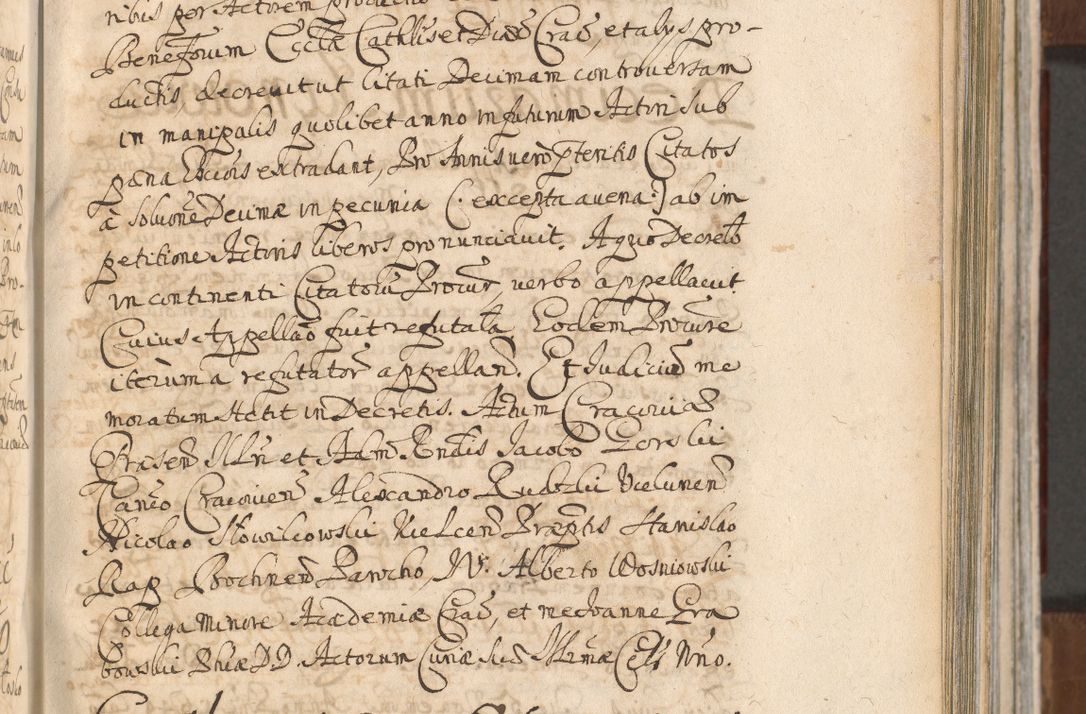 nibus per Actorem
Beneficiorum Ecctæ Cathlis et Diæc Crac, et alys pro-
ductis, decrevit ut Citati Decimam controversam
in manipulis quolibet anno in futurum Actori sub
pæna Exciois extradant, Pro Annis vero pteritis Citatos
à solutione Decimæ in pecunia (: excepta avena :) ab im
petitione Actoris liberos pronunciavit. A quo Decreto
in continenti Citatorũ Procur, verbo appellavit.
Cuius Appellao fuit refutata Eodem Procure
iterum a refutatore appellan. Et Judiciũ me
moratum stetit in Decretis. Actum Cracoviæ
Præsen Illri et Adm Rndis Jacobo Gorski
Canco Cracovien Alexandro Rudzki Vielunen
Nicolao Slowikowski Kielcen Præptis Stanislao
Rap Bochnen Parocho, N. Alberto Wosniowski
Collega Minore Academiæ Crac, et me Joanne Gra
bowski Phiæ D. Actorum Curiæ suæ Illrmæ Cels Nrio.